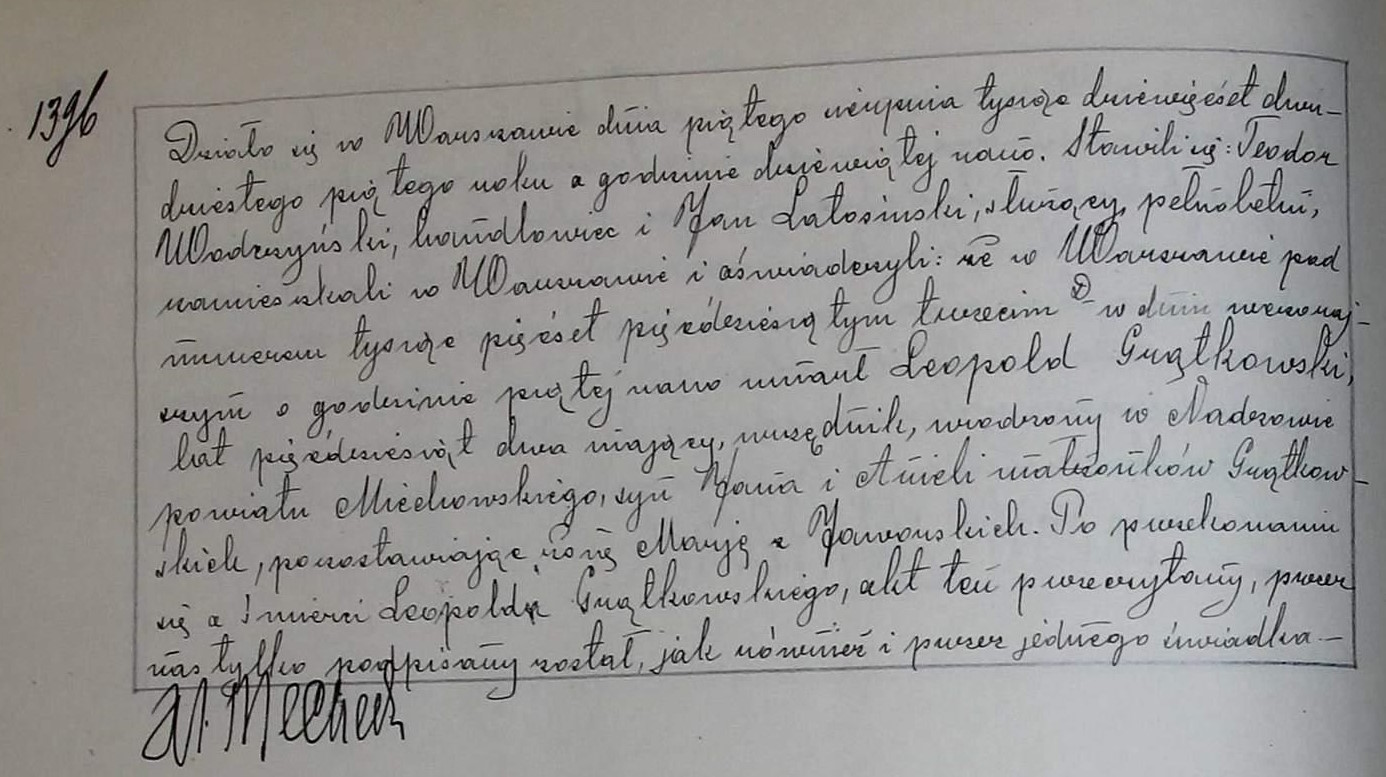 1396
Działo się w Warszawie dnia piątego sierpnia tysiąc dziewięćset dwu-
dziestego piątego roku o godzinie dziewiątej rano. Stawili się: Teodor
Wodzyński, handlowiec i Jan Latosinski, służący, pełnoletni,
zamieszkali w Warszawie i oświadczyli: że w Warszawie pod
numerem tysiąc pięćset pięćdziesiątym trzecim D w dniu wczoraj-
szym o godzinie piątej rano umarł Leopold Grątkowski,
lat pięćdziesiąt dwa mający, urzędnik, urodzony w Nadzowie
powiatu Miechowskiego, syn Jana i Anieli małżonków Grątkow-
skich, pozostawiając żonę Marję z Jaworskich. Po przekonaniu
się o śmierci Leopolda Grątkowskiego, akt ten przeczytany, przez
nas tylko podpisany został, jak również i przez jednego świadka.—